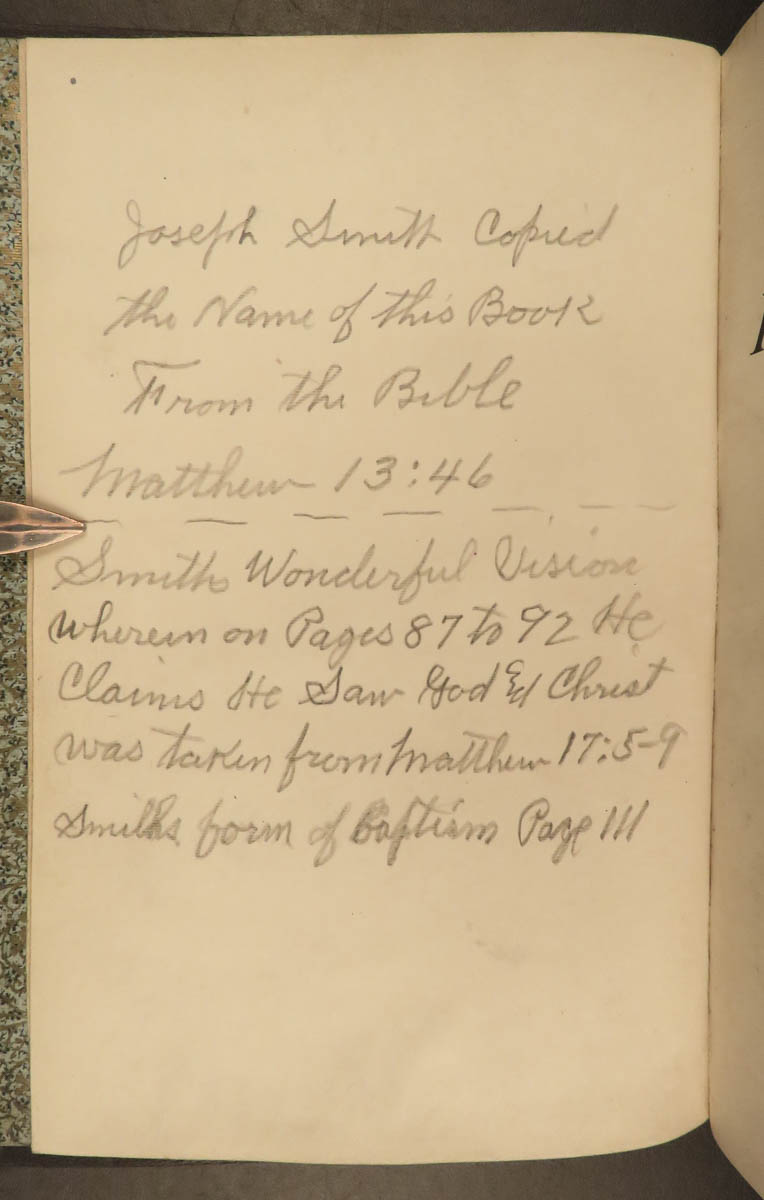 Joseph Smith Copied
the Name of this Book
From the Bible
Matthew 13:46
Smiths Wonderful Vision
wherein on Pages 87 to 92 He
Claims He Saw God & Christ
was taken from Matthew 17:5-9
Smiths form of Baptism Page 111